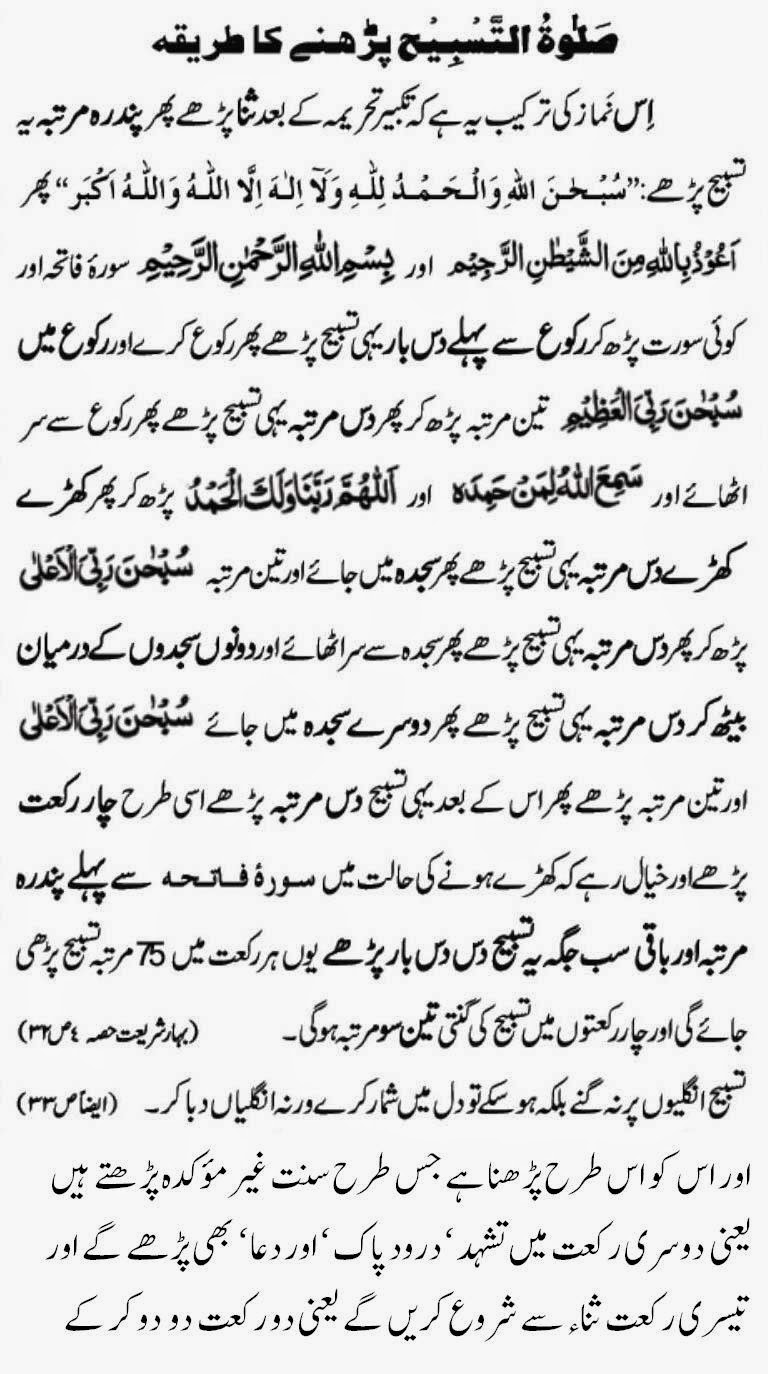 صَلٰوۃُ التَّسْبِیْح پڑھنے کا طریقہ
اِس نَماز کی ترکیب یہ ہے کہ تکبیرِ تحریمہ کے بعد ثنا پڑھے پھر پندرہ مرتبہ یہ
تسبیح پڑھے: ”سُبْحٰنَ اللہِ وَالْحَمْدُ لِلّٰہِ وَلَآ اِلٰہَ اِلَّا اللہُ وَاللہُ اَکْبَر“ پھر
اَعُوْذُ بِاللہِ مِنَ الشَّیْطٰنِ الرَّجِیْمِ اور بِسْمِ اللہِ الرَّحْمٰنِ الرَّحِیْمِ سورۂ فاتحہ اور
کوئی سورت پڑھ کر رکوع سے پہلے دس بار یہی تسبیح پڑھے پھر رکوع کرے اور رکوع میں
سُبْحٰنَ رَبِّیَ الْعَظِیْمِ تین مرتبہ پڑھ کر پھر دس مرتبہ یہی تسبیح پڑھے پھر رکوع سے سر
اٹھائے اور سَمِعَ اللہُ لِمَنْ حَمِدَہ اور اَللّٰھُمَّ رَبَّنَا وَلَکَ الْحَمْدُ پڑھ کر پھر کھڑے
کھڑے دس مرتبہ یہی تسبیح پڑھے پھر سجدہ میں جائے اور تین مرتبہ سُبْحٰنَ رَبِّیَ الْاَعْلٰی
پڑھ کر پھر دس مرتبہ یہی تسبیح پڑھے پھر سجدہ سے سر اٹھائے اور دونوں سجدوں کے درمیان
بیٹھ کر دس مرتبہ یہی تسبیح پڑھے پھر دوسرے سجدہ میں جائے سُبْحٰنَ رَبِّیَ الْاَعْلٰی
اور تین مرتبہ پڑھے پھر اس کے بعد یہی تسبیح دس مرتبہ پڑھے اسی طرح چار رکعت
پڑھے اور خیال رہے کہ کھڑے ہونے کی حالت میں سورۂ فاتحہ سے پہلے پندرہ
مرتبہ اور باقی سب جگہ یہ تسبیح دس دس بار پڑھے یوں ہر رکعت میں 75 مرتبہ تسبیح پڑھی
جائے گی اور چار رکعتوں میں تسبیح کی گنتی تین سو مرتبہ ہوگی۔ (بہار شریعت حصہ ٤ ص ۳۲)
تسبیح انگلیوں پر نہ گنے بلکہ ہو سکے تو دل میں شمار کرے ورنہ انگلیاں دبا کر۔ (ایضاً ص ۳۳)
اور اس کو اس طرح پڑھنا ہے جس طرح سنت غیر مؤکدہ پڑھتے ہیں
یعنی دوسری رکعت میں تشہد ‘ درود پاک ‘ اور دعا ‘ بھی پڑھے گے اور
تیسری رکعت ثناء سے شروع کریں گے یعنی دو رکعت دو دو کر کے